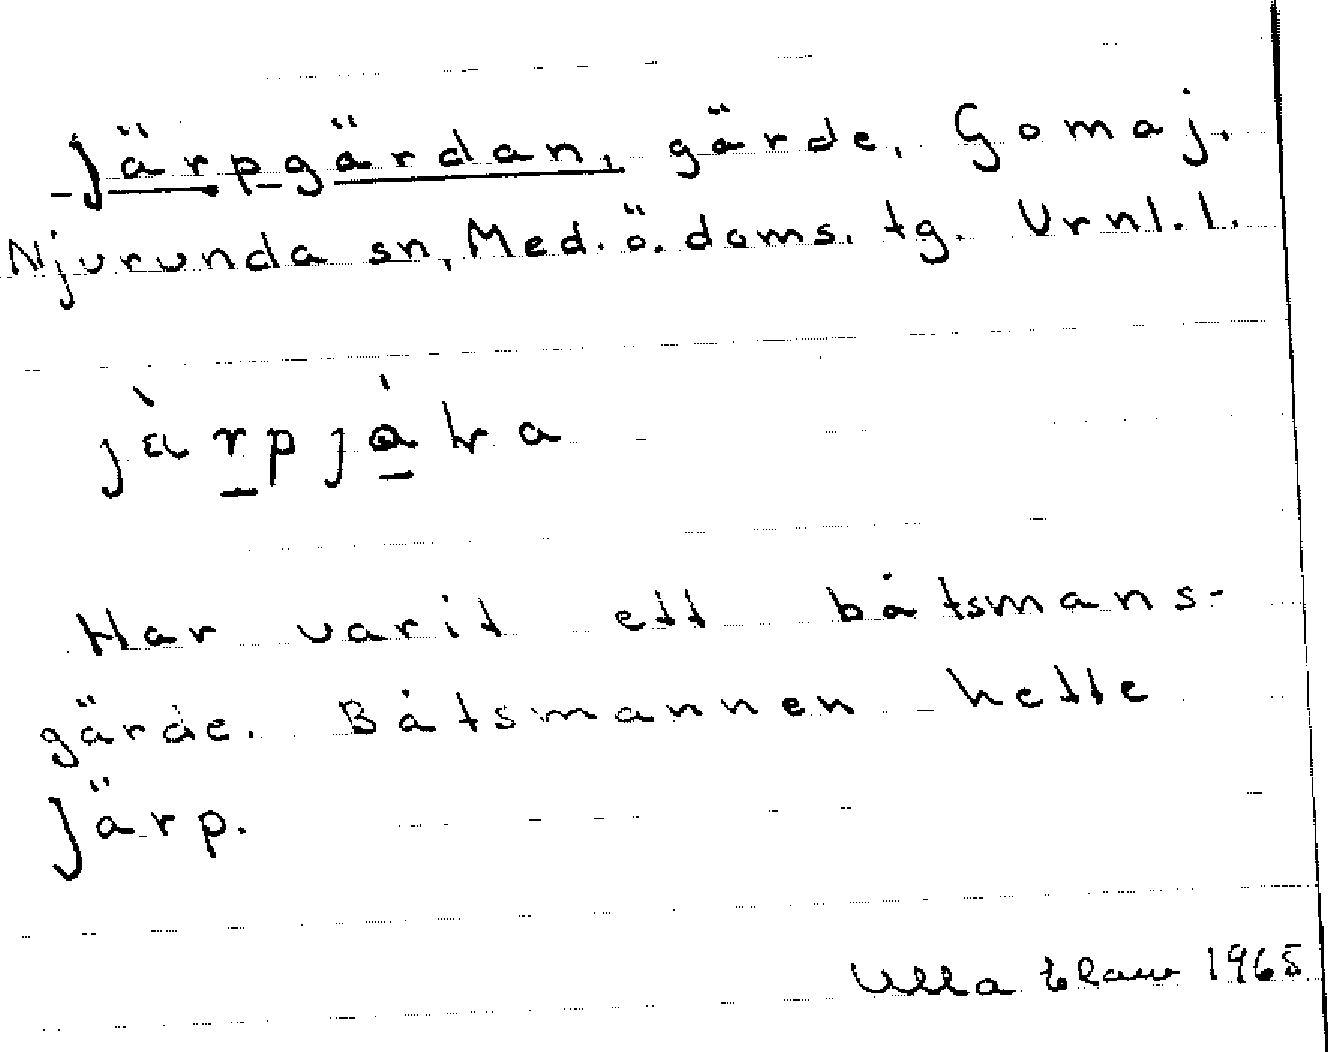 Järpgärdan, gärde, Gomaj.
Njurunda sn, Med. ö. doms. tg. Vrnl. l.
Har varit ett båtsmans-
gärde. Båtsmannen hette
Järp.
Ulla 1965